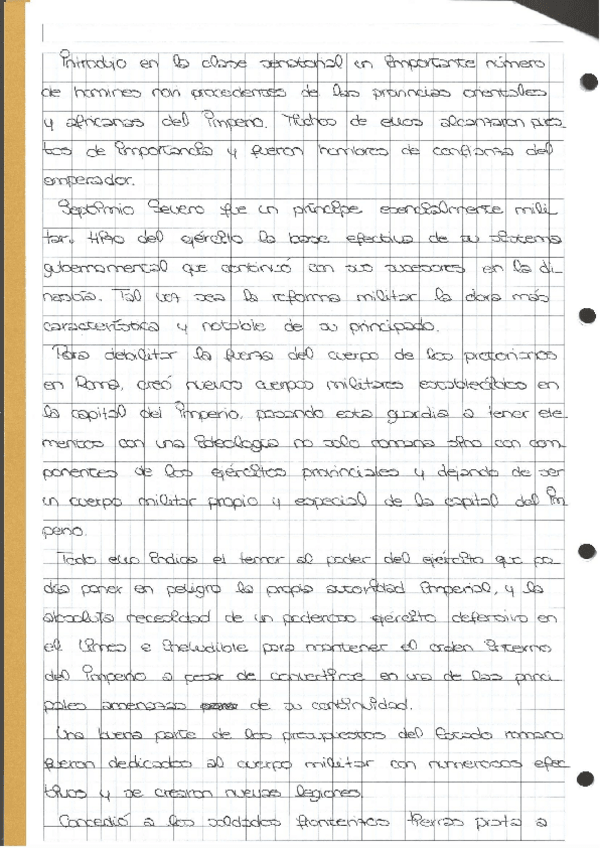 Introdujo en la clase senatorial un importante número
de homines novi procedentes de las provincias orientales
y africanas del Imperio. Muchos de ellos alcanzaron pues-
tos de importancia y fueron hombres de confianza del
emperador.
Septimio Severo fue un príncipe esencialmente mili-
tar. Hizo del ejército la base efectiva de su sistema
gubernamental que continuó con sus sucesores en la di-
nastía. Tal vez sea la reforma militar la obra más
característica y notable de su principado.
Para debilitar la fuerza del cuerpo de los pretorianos
en Roma, creó nuevos cuerpos militares establecidos en
la capital del Imperio, pasando esta guardia a tener ele-
mentos con una ideología no solo romana sino con com-
ponentes de los ejércitos provinciales y dejando de ser
un cuerpo militar propio y especial de la capital del Im
perio.
Todo ello indica el temor al poder del ejército que po-
día poner en peligro la propia autoridad imperial, y la
absoluta necesidad de un poderoso ejército defensivo en
el limes e ineludible para mantener el orden interno
del Imperio a pesar de convertirse en una de las princi
pales amenazas de su continuidad.
Una buena parte de los presupuestos del Estado romano
fueron dedicados al cuerpo militar con numerosos efec
tivos y se crearon nuevas legiones.
Concedió a los soldados fronterizos tierras prata a